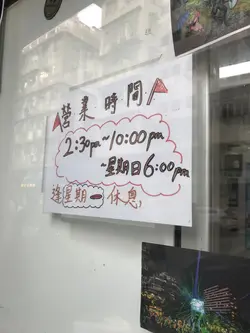 營業時間
2:30pm~10:00pm
~星期日6:00pm
逢星期一休息,